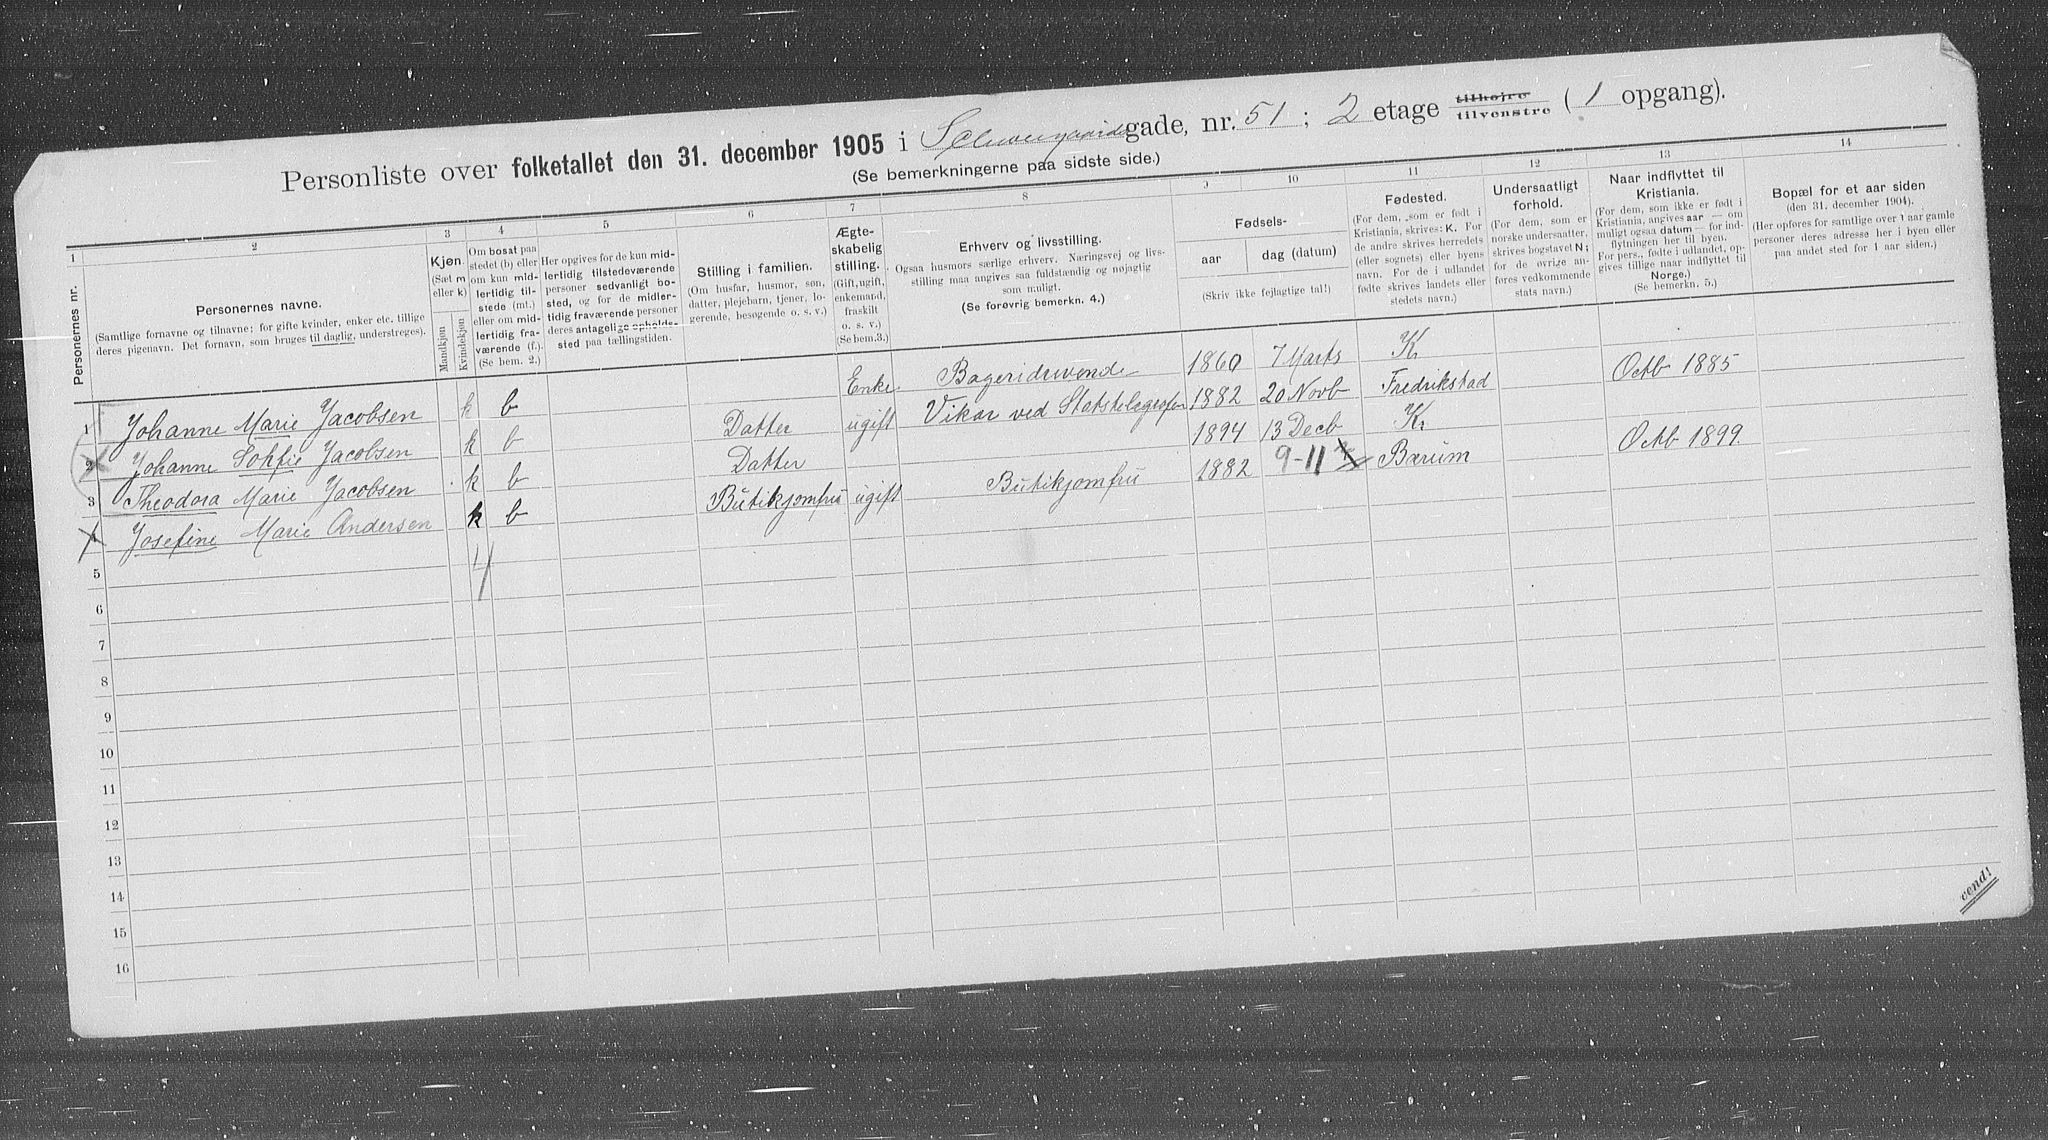 Personliste over folketallet den 31. december 1905 i Schweigaardsgade, nr. 51; 2 etage tilhøjre tilvenstre (1 opgang).
(Se bemerkningerne paa sidste side.)
1 2 3 4 5 6 7 8 9 10 11 12 13 14
Personernes nr.
Personernes navne.
(Samtlige fornavne og tilnavne; for gifte kvinder, enker etc. tillige
deres pigenavn. Det fornavn, som bruges til daglig, understreges).
Kjøn.
(Sæt m
eller k)
Mandkjøn
Kvindekjøn
Om bosat paa
stedet (b) eller
om kun mid-
lertidig til-
stede (mt.)
eller om mid-
lertidig fra-
værende (f.).
(Se bem. 2.)
Her opgives for de kun mid-
lertidig tilstedeværende
personer sedvanligt bo-
sted, og for de midler-
tidig fraværende personer
deres antagelige opholds-
sted paa tællingstiden.
Stilling i familien.
(Om husfar, husmor, søn,
datter, plejebarn, tjener, lo-
gerende, besøgende o. s. v.)
Ægte-
skabelig
stilling.
(Gift, ugift,
enkemand,
fraskilt
o. s. v.)
(Se bem. 3.)
Erhverv og livsstilling.
Ogsaa husmors særlige erhverv. Næringsvej og livs-
stilling maa angives saa fuldstændig og nøjagtig
som muligt.
(Se forøvrig bemerkn. 4.)
Fødsels-
aar
dag (datum)
(Skriv ikke fejlagtige tal!)
Fødested.
(For dem, som er født i
Kristiania, skrives: K. For
de andre skrives herredets
(eller sognets) eller byens
navn. For de i udlandet
fødte skrives landets eller
stedets navn.)
Undersaatligt
forhold.
(For dem, som er
norske undersaatter,
skrives bogstavet N;
for de øvrige an-
føres vedkommende
stats navn.)
Naar indflyttet til
Kristiania.
(For dem, som ikke er født i
Kristiania, angives aar — om
muligt ogsaa datum — for ind-
flytningen her til byen.
For pers., fødte i udlandet, op-
gives tillige naar indflyttet til
Norge.)
(Se bemerkn. 5.)
Bopæl for et aar siden
(den 31. december 1904).
(Her opføres for samtlige over 1 aar gamle
personer deres adresse her i byen eller
paa andet sted for 1 aar siden.)
1 Johanne Marie Jacobsen k b Enke Bageridrivende 1860 7 Marts K.
2 Johanne Sofie Jacobsen k b Datter ugift Vikar ved Statstelegrafen 1882 20 Novb Fredrikstad Octb 1885
3 Theodora Marie Jacobsen k b Datter 1894 13 Decb K.
4 Josefine Marie Andersen k b Butikjomfru ugift Butikjomfru 1882 9-11 Bærum Octb 1899.
4
5
6
7
8
9
10
11
12
13
14
15
16
vend!